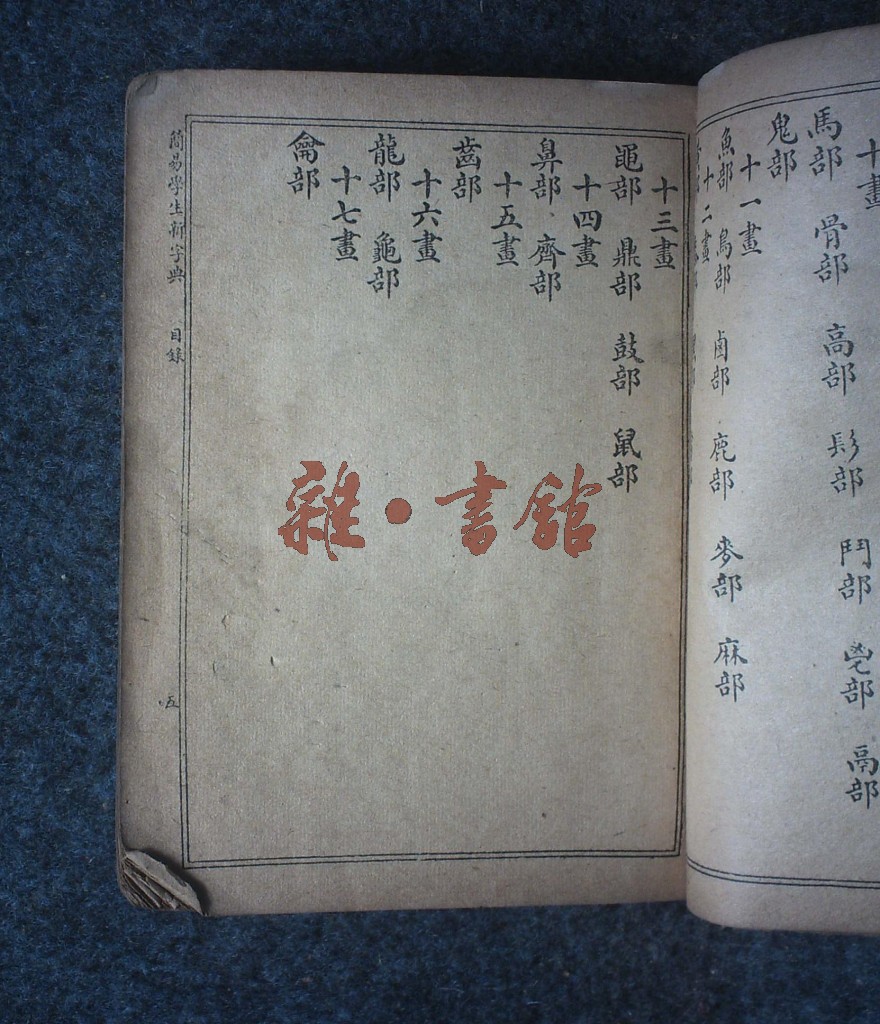 十畫
馬部 骨部 高部 髟部 鬥部 鬯部 鬲部
鬼部
十一畫
魚部 鳥部 鹵部 鹿部 麥部 麻部
十二畫
十三畫
黽部 鼎部 鼓部 鼠部
十四畫
鼻部 齊部
十五畫
齒部
十六畫
龍部 龜部
十七畫
龠部
簡易學生新字典 目錄 五
雜·書館